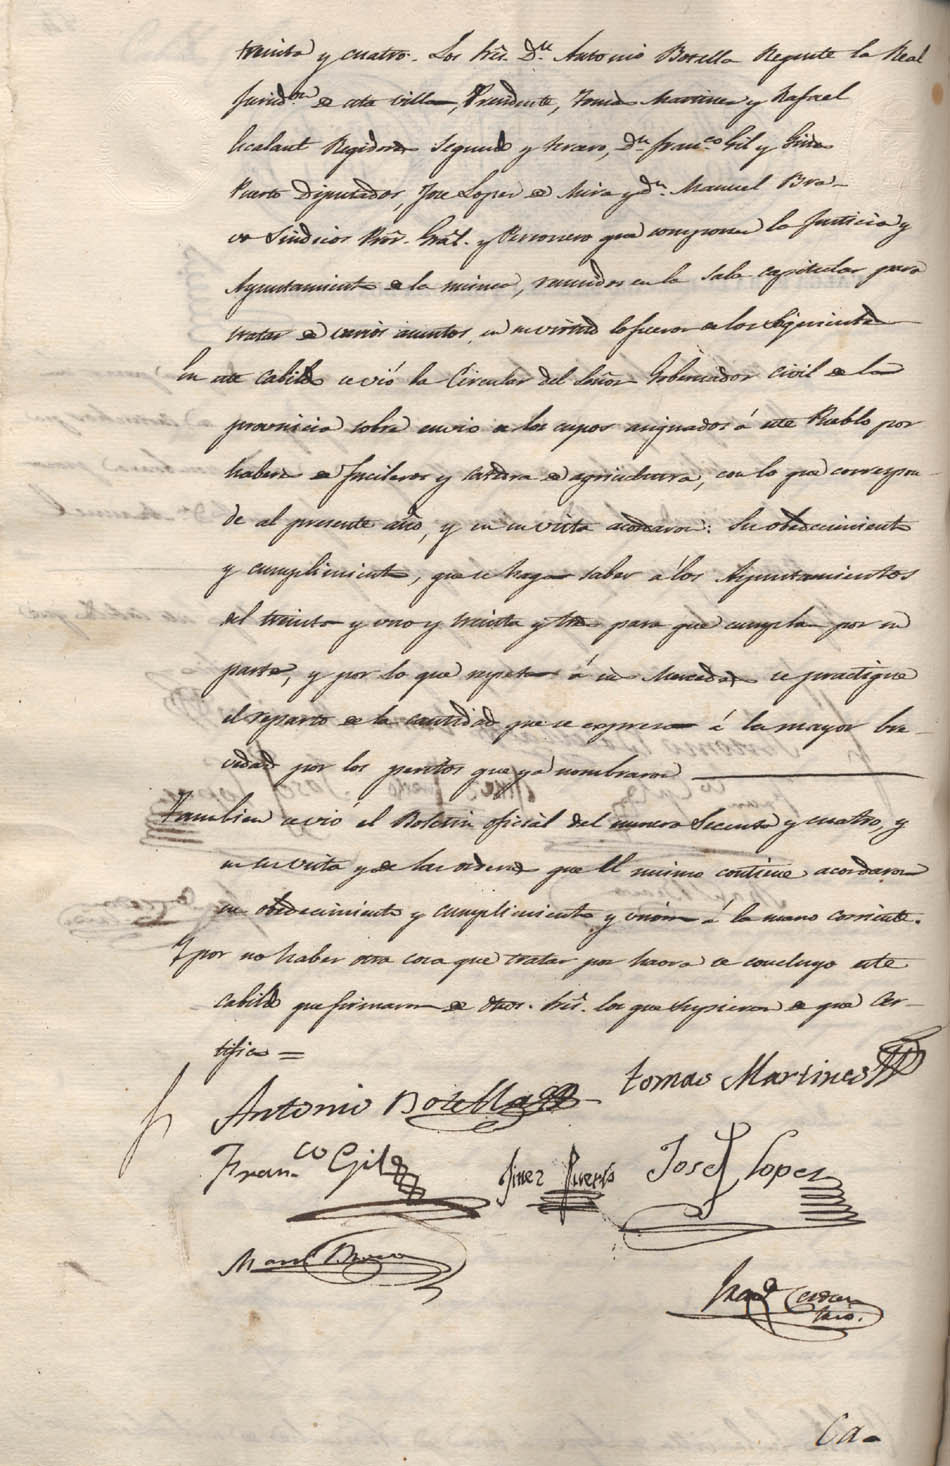 treinta y cuatro. Los Sres. Dn. Antonio Botella Regente la Real
Juridon. de esta villa, Presidente, Tomas Martinez y Rafael
Escalant Regidores Segundo y tercero, Dn. Franco. Gil y Ginez
Puerto Diputados Jose Lopez de Mira y Dn. Manuel Bra-
vo Sindicos Pror. Gral. y Personero que componen la Justicia y
Ayuntamiento de la misma, reunidos en la Sala capitular para
tratar de varios asuntos, en su virtud lo fueron de los siguientes
En este cabildo se vió la Circular del Señor Gobernador civil de la
provincia sobre envio de los cupos asignados á este Pueblo por
haberes de fucileros y catedra de agricultura, con lo que correspon-
de al presente año, y en su vista acordaron: Su obedecimiento
y cumplimiento, que se haga saber á los Ayuntamientos
del treinta y uno y treinta y tres para que cumplan por su
parte, y por lo que respeta á sus Mercedes se practique
el reparto de la cantidad que se expresa á la mayor bre-
vedad por los peritos que ya nombraron
Tambien se vió el Boletin oficial del numero Secenta y cuatro, y
en su vista y de las ordenes que El mismo contiene acordaron
su obedecimiento y cumplimiento y union á la mano corriente.
Y por no haber otra cosa que tratar por haora se concluyo este
cabildo que firmaron de dhos. Sres. los que supieron de que Cer-
tifico =
Antonio Botella tomas Martines
Franco. Gil Jinez Puerto Josef Lopez
Manl. Bravo
Cerdan
Srio.
Ca-